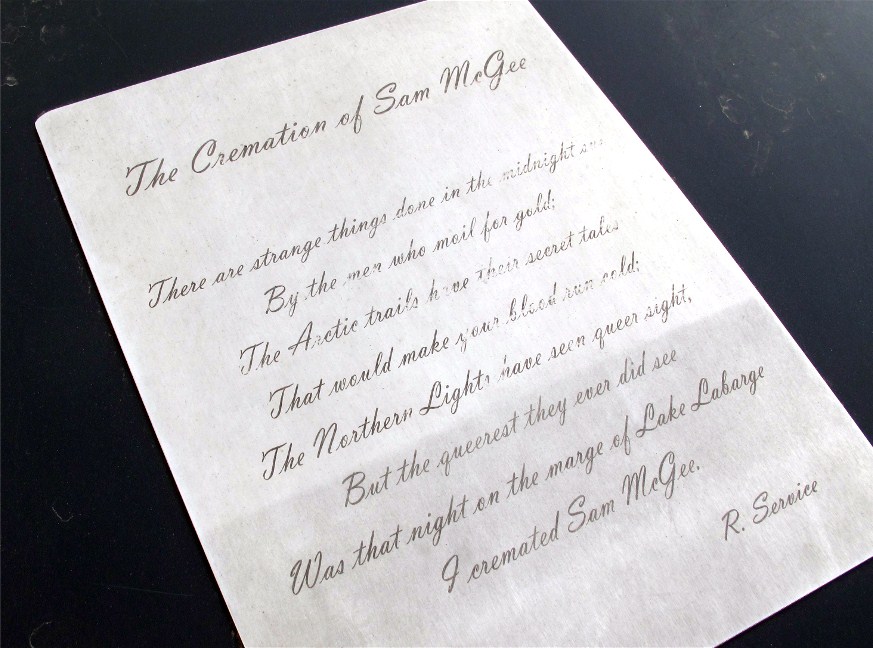 The Cremation of Sam McGee
There are strange things done in the midnight sun
By the men who moil for gold;
The Arctic trails have their secret tales
That would make your blood run cold;
The Northern Lights have seen queer sight,
But the queerest they ever did see
Was that night on the marge of Lake Labarge
I cremated Sam McGee.
R. Service